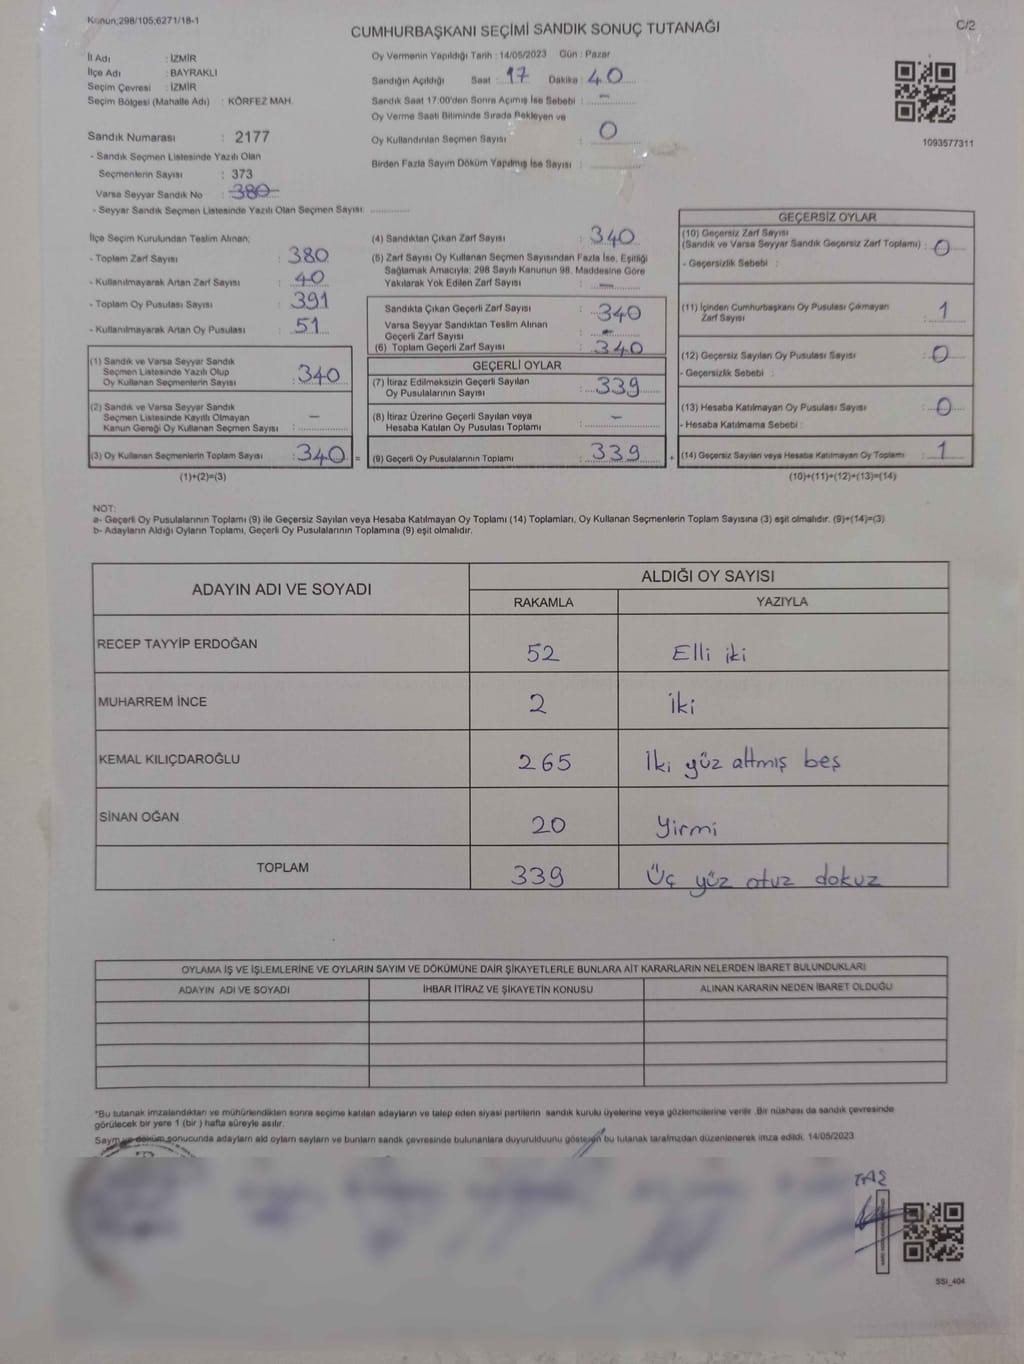 Kanun;298/105;6271/18-1
CUMHURBAŞKANI SEÇİMİ SANDIK SONUÇ TUTANAĞI
C/2
İl Adı : İZMİR
İlçe Adı : BAYRAKLI
Seçim Çevresi : İZMİR
Seçim Bölgesi (Mahalle Adı) : KÖRFEZ MAH.
Sandık Numarası : 2177
- Sandık Seçmen Listesinde Yazılı Olan
Seçmenlerin Sayısı : 373
Varsa Seyyar Sandık No : 380
- Seyyar Sandık Seçmen Listesinde Yazılı Olan Seçmen Sayısı: ............
Oy Vermenin Yapıldığı Tarih : 14/05/2023 Gün : Pazar
Sandığın Açıldığı Saat : 17 Dakika : 40
Sandık Saat 17:00'den Sonra Açımış İse Sebebi : —
Oy Verme Saati Bitiminde Sırada Bekleyen ve
Oy Kullandırılan Seçmen Sayısı : 0
Birden Fazla Sayım Döküm Yapılmış İse Sayısı : ............
1093577311
İlçe Seçim Kurulundan Teslim Alınan;
- Toplam Zarf Sayısı : 380
- Kullanılmayarak Artan Zarf Sayısı : 40
- Toplam Oy Pusulası Sayısı : 391
- Kullanılmayarak Artan Oy Pusulası : 51
(1) Sandık ve Varsa Seyyar Sandık
Seçmen Listesinde Yazılı Olup
Oy Kullanan Seçmenlerin Sayısı : 340
(2) Sandık ve Varsa Seyyar Sandık
Seçmen Listesinde Kayıtlı Olmayan
Kanun Gereği Oy Kullanan Seçmen Sayısı : —
(3) Oy Kullanan Seçmenlerin Toplam Sayısı : 340 =
(1)+(2)=(3)
(4) Sandıktan Çıkan Zarf Sayısı : 340
(5) Zarf Sayısı Oy Kullanan Seçmen Sayısından Fazla İse, Eşitliği
Sağlamak Amacıyla; 298 Sayılı Kanunun 98. Maddesine Göre
Yakılarak Yok Edilen Zarf Sayısı : —
Sandıkta Çıkan Geçerli Zarf Sayısı : 340
Varsa Seyyar Sandıktan Teslim Alınan
Geçerli Zarf Sayısı : —
(6) Toplam Geçerli Zarf Sayısı : 340
GEÇERLİ OYLAR
(7) İtiraz Edilmeksizin Geçerli Sayılan
Oy Pusulalarının Sayısı : 339
(8) İtiraz Üzerine Geçerli Sayılan veya
Hesaba Katılan Oy Pusulası Toplamı : —
(9) Geçerli Oy Pusulalarının Toplamı : 339 +
GEÇERSİZ OYLAR
(10) Geçersiz Zarf Sayısı
(Sandık ve Varsa Seyyar Sandık Geçersiz Zarf Toplamı) : 0
- Geçersizlik Sebebi :
(11) İçinden Cumhurbaşkanı Oy Pusulası Çıkmayan
Zarf Sayısı : 1
(12) Geçersiz Sayılan Oy Pusulası Sayısı : 0
- Geçersizlik Sebebi :
(13) Hesaba Katılmayan Oy Pusulası Sayısı : 0
- Hesaba Katılmama Sebebi :
(14) Geçersiz Sayılan veya Hesaba Katılmayan Oy Toplamı : 1
(10)+(11)+(12)+(13)=(14)
NOT:
a- Geçerli Oy Pusulalarının Toplamı (9) ile Geçersiz Sayılan veya Hesaba Katılmayan Oy Toplamı (14) Toplamları, Oy Kullanan Seçmenlerin Toplam Sayısına (3) eşit olmalıdır. (9)+(14)=(3)
b- Adayların Aldığı Oyların Toplamı, Geçerli Oy Pusulalarının Toplamına (9) eşit olmalıdır.
ADAYIN ADI VE SOYADI
ALDIĞI OY SAYISI
RAKAMLA YAZIYLA
RECEP TAYYİP ERDOĞAN 52 Elli iki
MUHARREM İNCE 2 iki
KEMAL KILIÇDAROĞLU 265 İki yüz altmış beş
SİNAN OĞAN 20 Yirmi
TOPLAM 339 Üç yüz otuz dokuz
OYLAMA İŞ VE İŞLEMLERİNE VE OYLARIN SAYIM VE DÖKÜMÜNE DAİR ŞİKAYETLERLE BUNLARA AİT KARARLARIN NELERDEN İBARET BULUNDUKLARI
ADAYIN ADI VE SOYADI İHBAR İTİRAZ VE ŞİKAYETİN KONUSU ALINAN KARARIN NEDEN İBARET OLDUĞU
*Bu tutanak imzalandıktan ve mühürlendikten sonra seçime katılan adayların ve talep eden siyasi partilerin sandık kurulu üyelerine veya gözlemcilerine verilir .Bir nüshası da sandık çevresinde
görülecek bir yere 1 (bir ) hafta süreyle asılır.
Sayım ve döküm sonucunda adayların ald oyların sayların ve bunların sandk çevresinde bulunanlara duyurulduunu gösteren bu tutanak tarafmzdan düzenlenerek imza edildi. 14/05/2023
SSİ_404